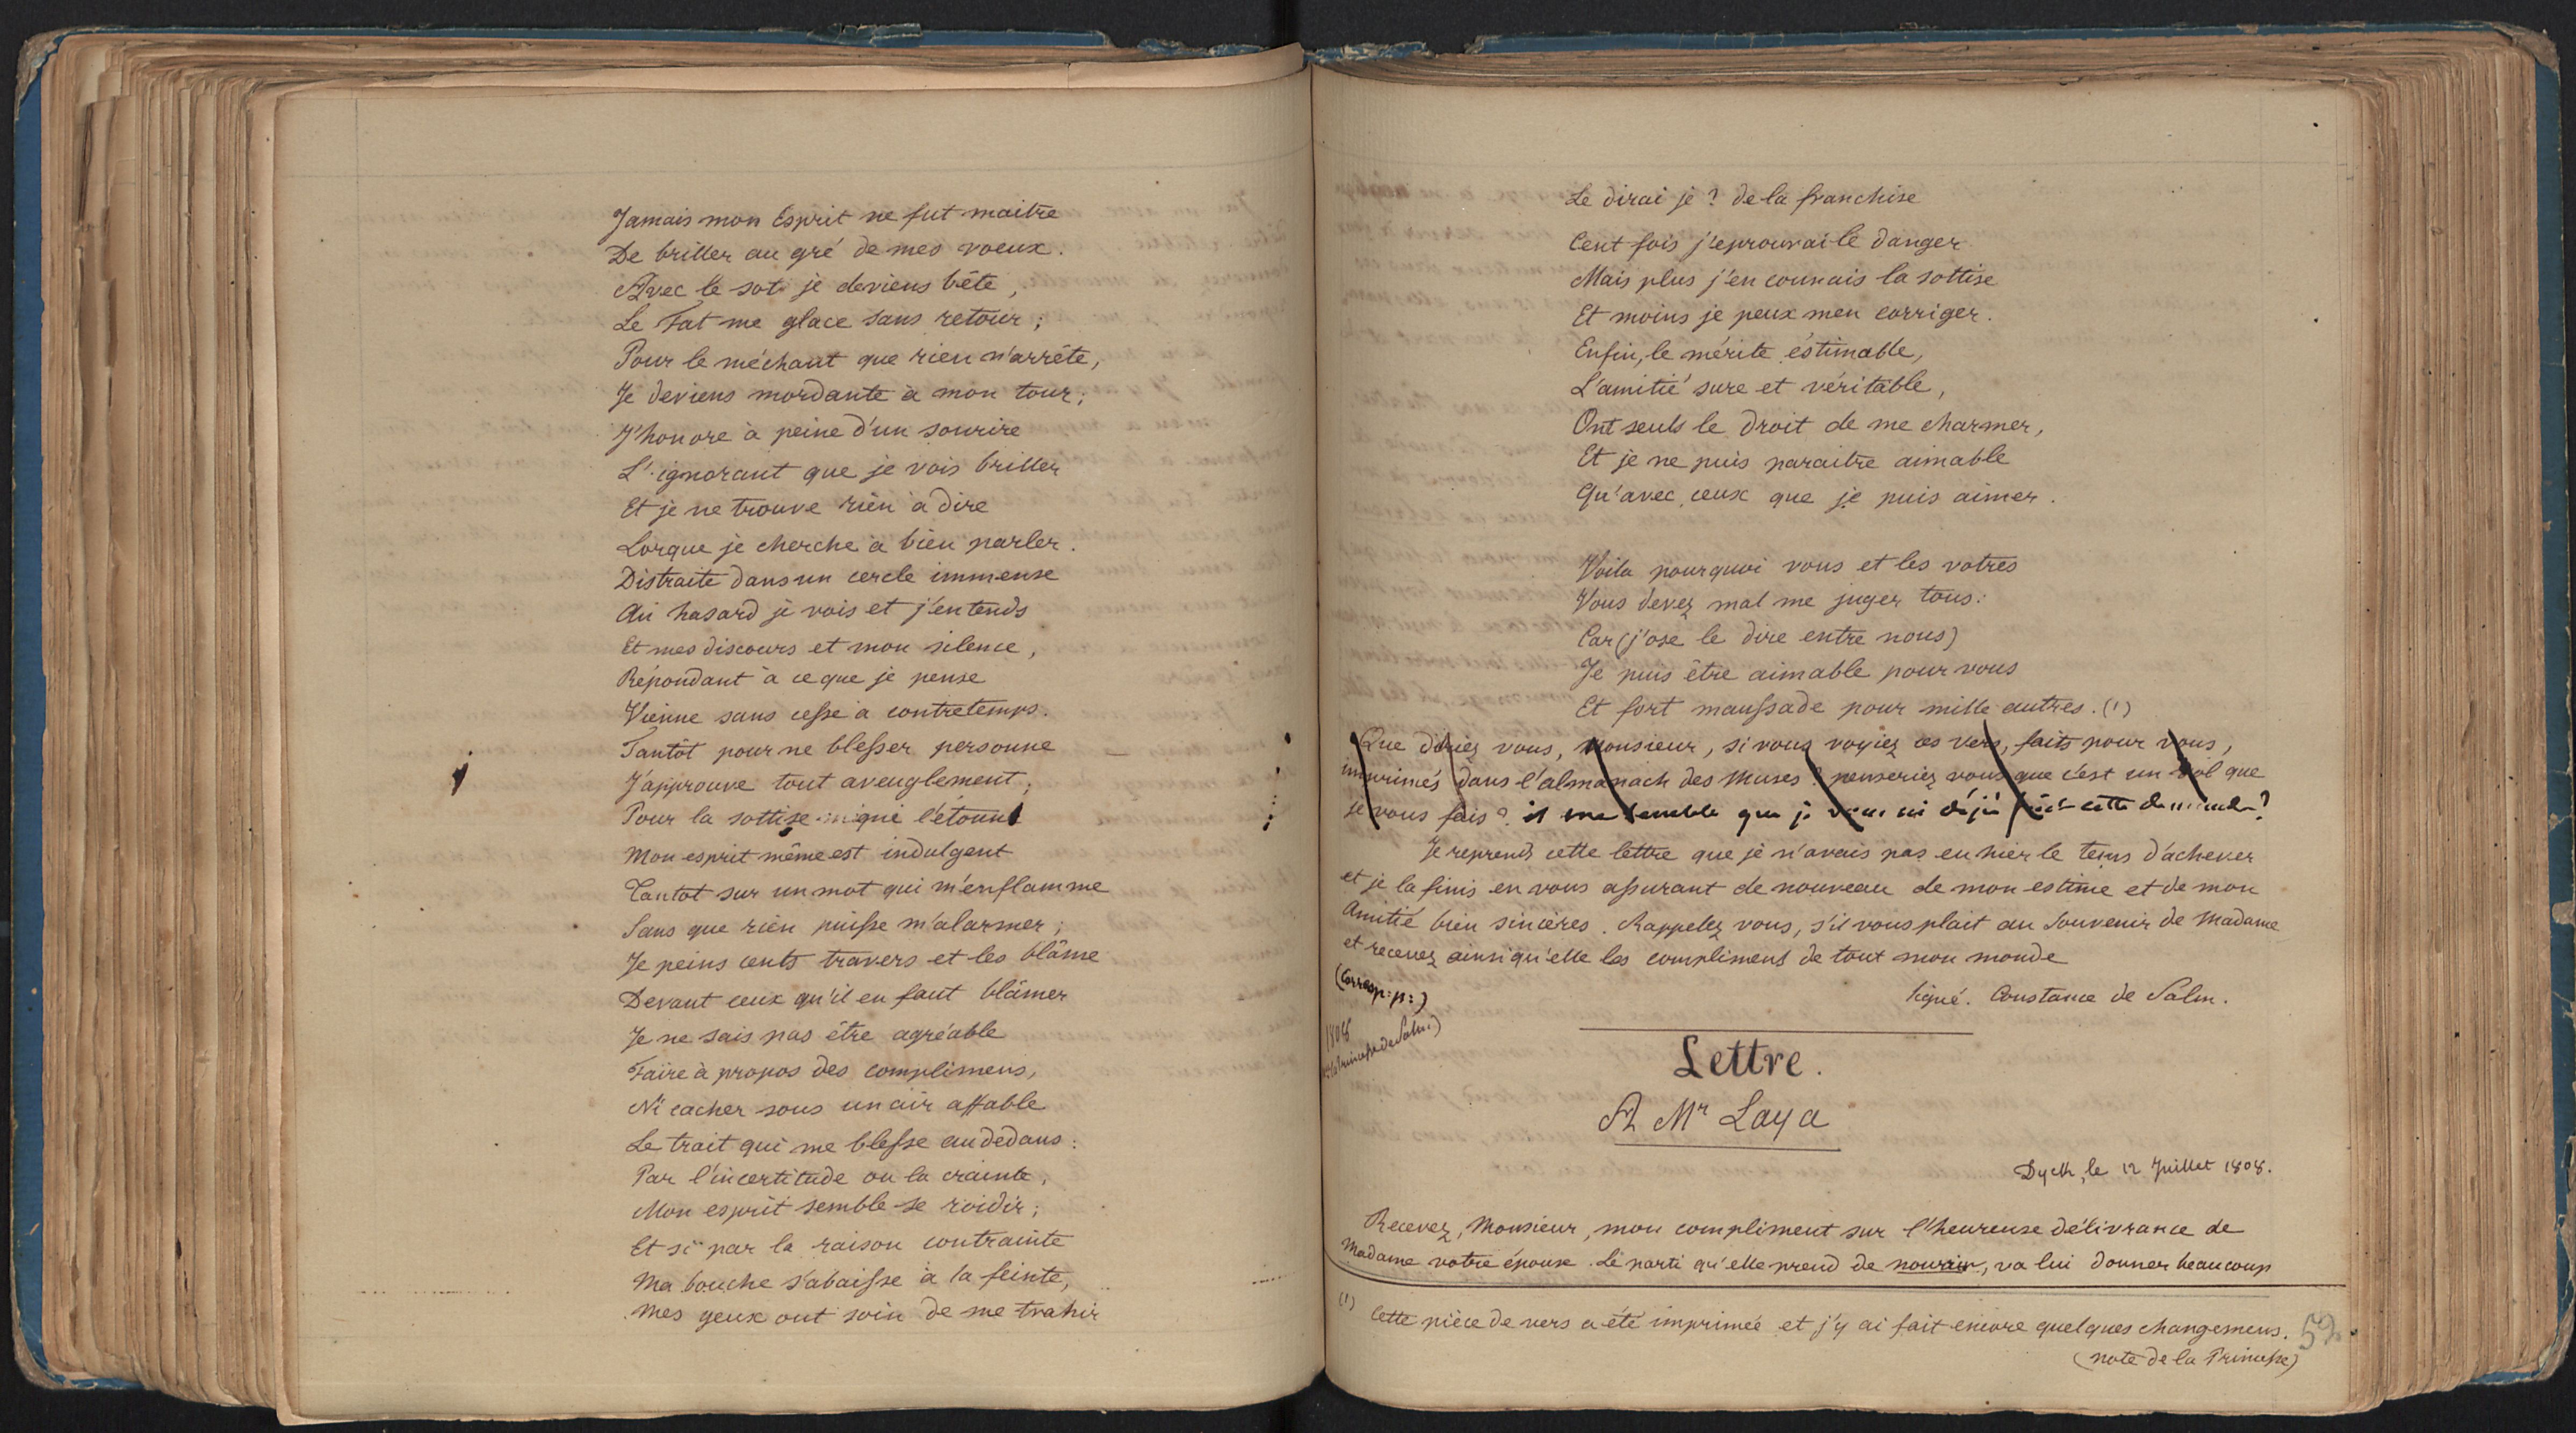 Jamais mon Esprit ne fut maitre
De briller au gré de mes voeux.
Avec le sot je deviens bête,
Le Fat me glace sans retour;
Pour le méchant que rien n'arrête,
Je deviens mordante à mon tour;
J'honore à peine d'un sourire
L'ignorant que je vois briller
Et je ne trouve rien à dire
Lorque je cherche à bien parler.
Distraite dans un cercle immense
Au hasard je vois et j'entends
Et mes discours et mon silence,
Répondant à ce que je pense
Vienne sans cesse à contretemps.
Tantôt pour ne blesser personne
J'approuve tout aveuglement;
Pour la sottise qui l'étonne
Mon esprit même est indulgent
Tantot sur un mot qui m'enflamme
Sans que rien puisse m'alarmer;
Je peins cents travers et les blâme
Devant ceux qu'il en faut blâmer
Je ne sais pas être agréable
Faire à propos des complimens,
Ni cacher sous un air affable
Le trait qui me blesse au dedans:
Par l'incertitude ou la crainte,
Mon esprit semble se roidir;
Et si par la raison contrainte
Ma bouche s'abaisse à la feinte,
Mes yeux ont soin de me trahir
Le dirai je ? de la franchise
Cent fois j'eprouvai le danger
Mais plus j'en connais la sottise
Et moins je peux men corriger.
Enfin, le mérite éstimable,
L'amitié sure et véritable,
Ont seuls le droit de me charmer,
Et je ne puis paraitre aimable
Qu'avec ceux que je puis aimer.
Voila pourquoi vous et les votres
Vous devez mal me juger tous:
Car (j'ose le dire entre nous)
Je puis être aimable pour vous
Et fort maussade pour mille autres. (1)
Que diriez vous, Monsieur, si vous voyiez ces vers, faits pour vous,
imprimés dans l'almanach des Muses ? penseriez vous que c'est un vol que
je vous fais ? il me semble que je vous ai déjà fait cette demande ?
Je reprends cette lettre que je n'avais pas eu hier le tems d'achever
et je la finis en vous assurant de nouveau de mon estime et de mon
Amitié bien sincères. Rappelez vous, s'il vous plait au Souvenir de Madame
et recevez ainsi qu'elle les compliments de tout mon monde
(Corresp: p:)
Signé. Constance de Salm.
1808
de la Princesse de Salm)
Lettre.
A Mr Laya
Dyck, le 12 Juillet 1808.
Recevez, Monsieur, mon compliment sur l'heureuse délivrance de
Madame votre épouse. Le parti qu'elle prend de nourrir, va lui donner beaucoup
(1) Cette pièce de vers a été imprimée et j'y ai fait encore quelques changemens.
(note de la Princesse)
52